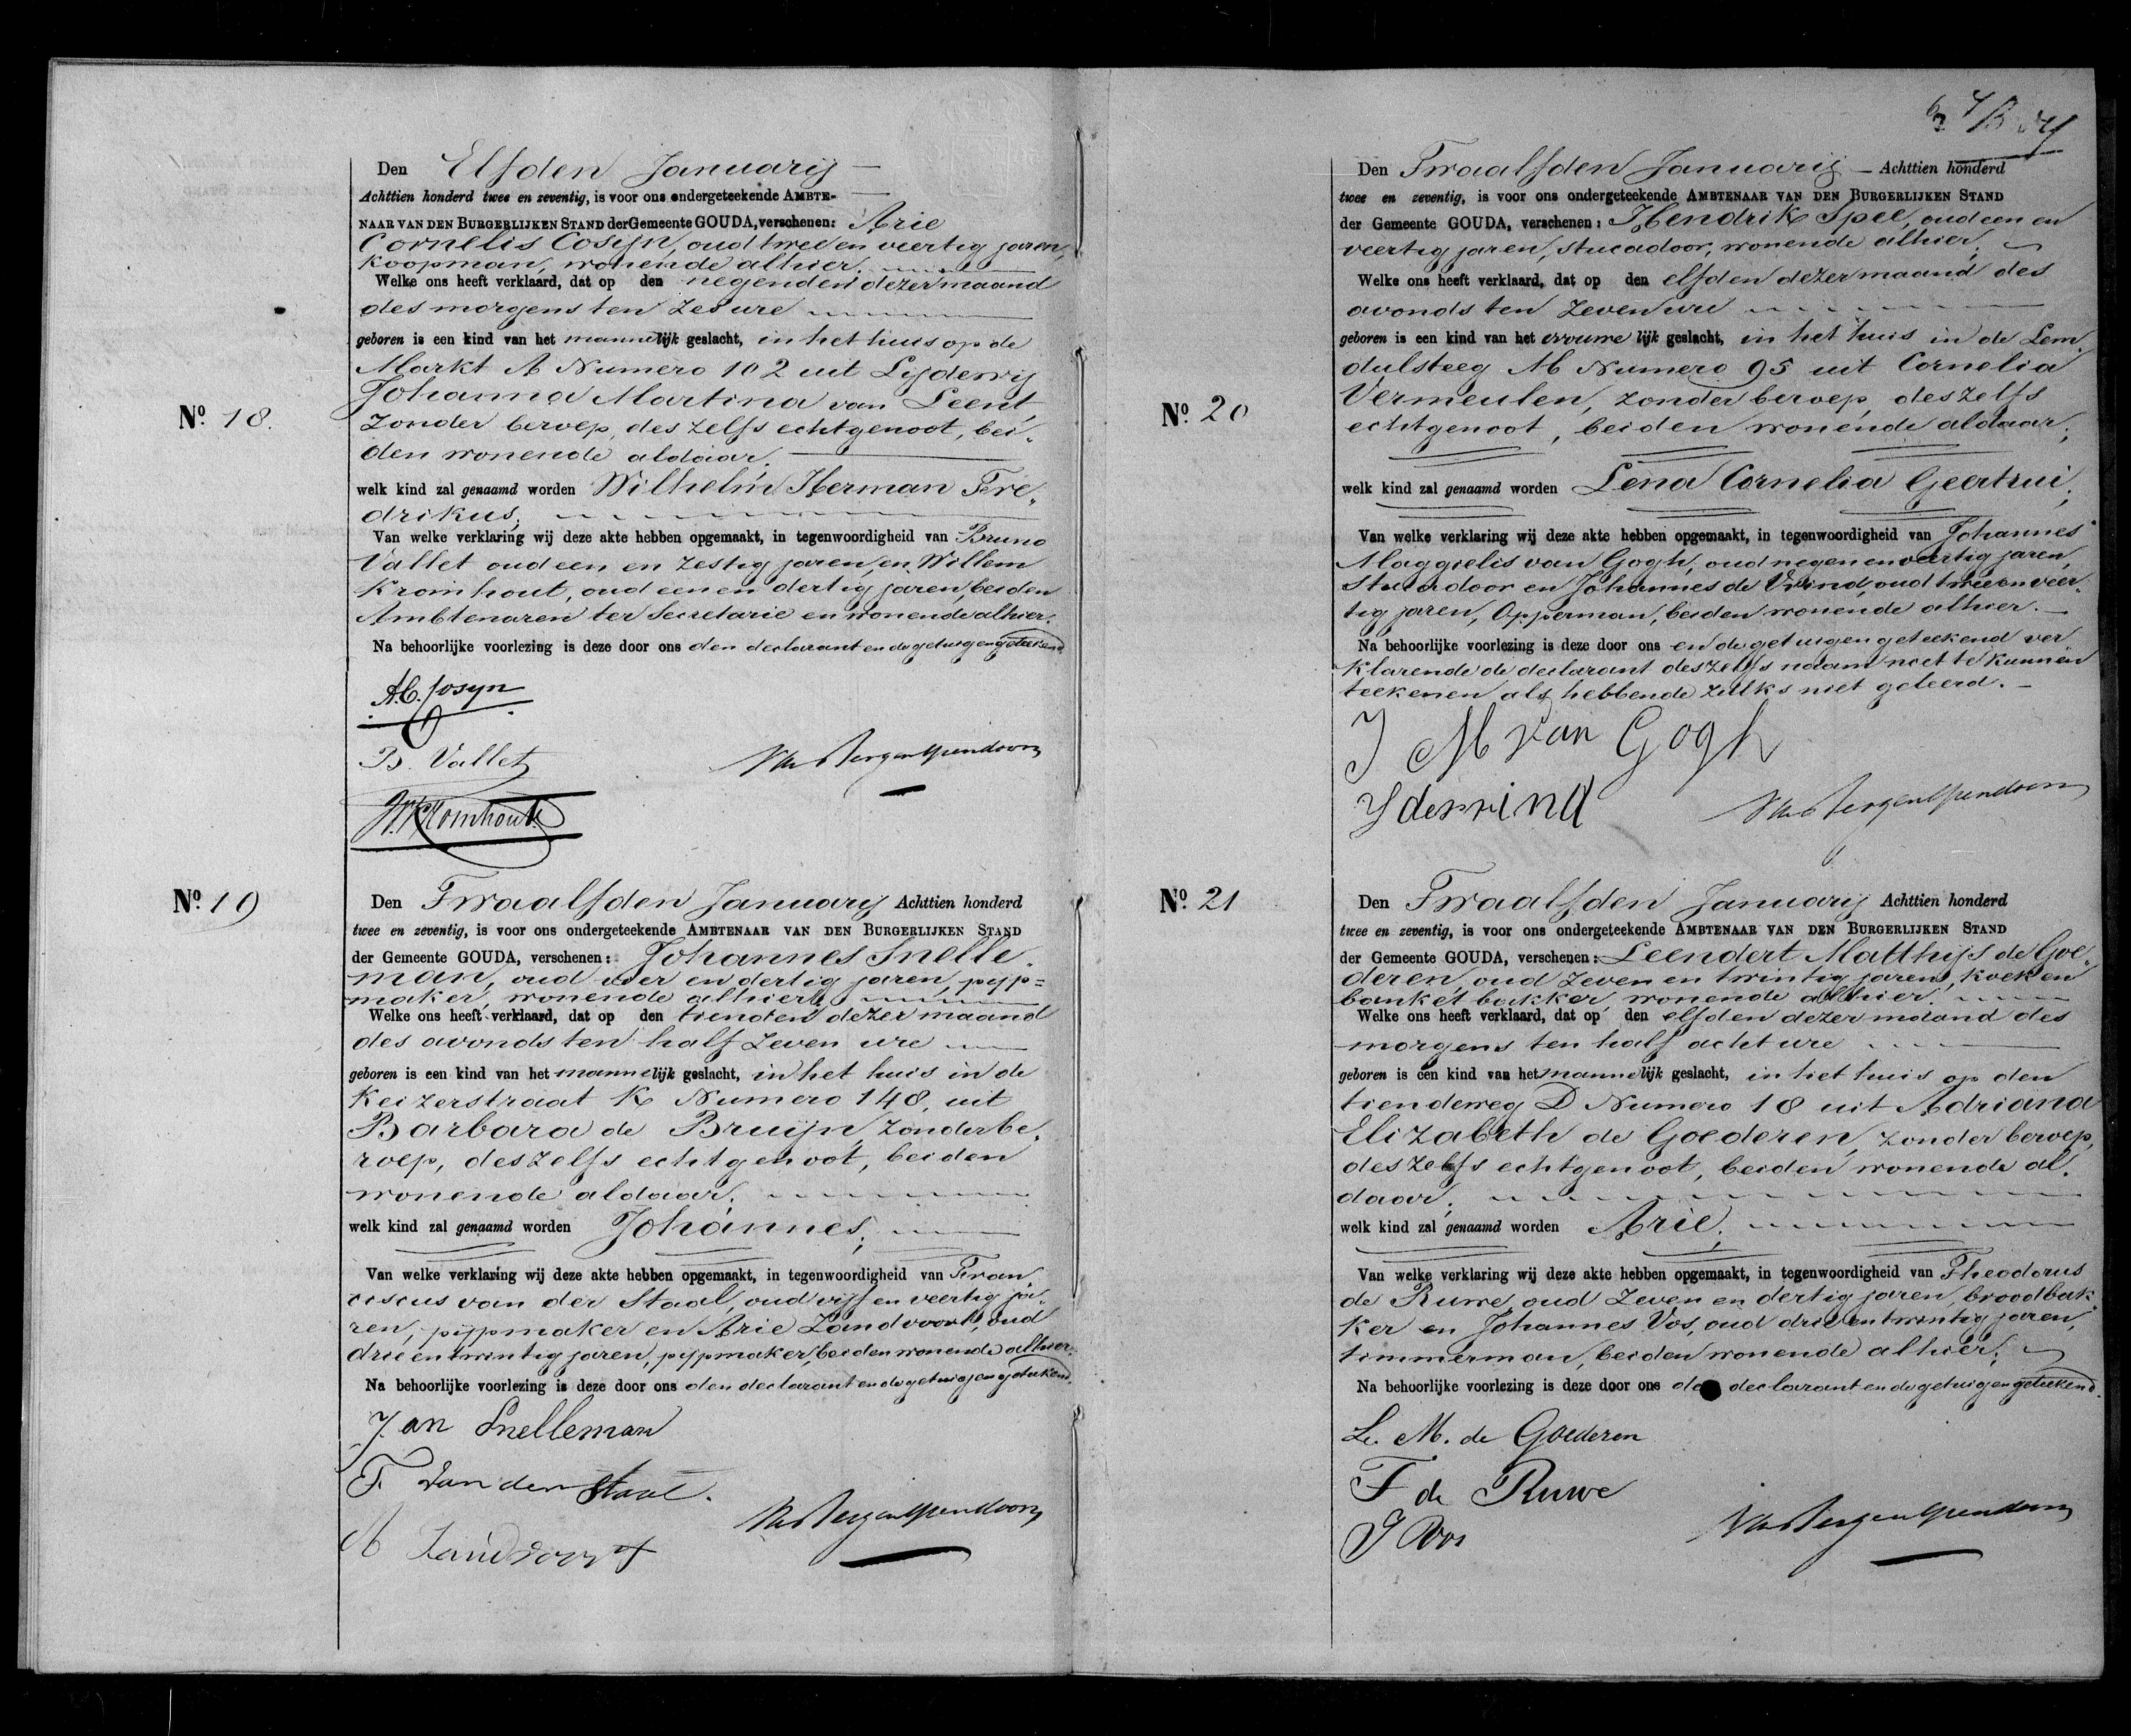 Nº 18.
Den Elfden Januarij
Achttien honderd twee en zeventig, is voor ons ondergeteekende AMBTE-
NAAR VAN DEN BURGERLIJKEN STAND der Gemeente GOUDA, verschenen: Arie
Cornelis Cosijn, oud twee en veertig jaren,
koopman, wonende alhier.
Welke ons heeft verklaard, dat op den negenden dezer maand
des morgens ten zes ure
geboren is een kind van het mannelijk geslacht, in het huis op de
Markt A Numero 102 uit Lijdewij
Johanna Martina van Leent,
zonder beroep, deszelfs echtgenoot, bei-
den wonende aldaar,
welk kind zal genaamd worden Wilhelm Herman Fre-
drikus;
Van welke verklaring wij deze akte hebben opgemaakt, in tegenwoordigheid van Bruno
Vallet oud een en zestig jaren, en Willem
Kromhout, oud een en dertig jaren, beiden
Ambtenaren ter Secretarie en wonende alhier.
Na behoorlijke voorlezing is deze door ons den declarant en de getuigen geteekend
A.C. Cosyn
B. Vallet
W. Kromhout
Nº 19
Den Twaalfden Januarij Achttien honderd
twee en zeventig, is voor ons ondergeteekende AMBTENAAR VAN DEN BURGERLIJKEN STAND
der Gemeente GOUDA, verschenen: Johannes Snelle-
man, oud vier en dertig jaren, pijp=
maker, wonende alhier,
Welke ons heeft verklaard, dat op den tienden dezer maand
des avonds ten half zeven ure
geboren is een kind van het mannelijk geslacht, in het huis in de
Keizerstraat K Numero 148, uit
Barbara de Bruijn, zonder be-
roep, deszelfs echtgenoot, beiden
wonende aldaar.
welk kind zal genaamd worden Johannes;
Van welke verklaring wij deze akte hebben opgemaakt, in tegenwoordigheid van Fran-
ciscus van der Staal, oud vijf en veertig ja-
ren, pijpmaker en Arie Zandvoort, oud
drie en twintig jaren, pijpmaker, beiden wonende alhier.
Na behoorlijke voorlezing is deze door ons den declarant en de getuigen geteekend.
Jan Snelleman
F. van der Staal.
A Zandvoort
Nº 20
Den Twaalfden Januarij Achttien honderd
twee en zeventig, is voor ons ondergeteekende AMBTENAAR VAN DEN BURGERLIJKEN STAND
der Gemeente GOUDA, verschenen: Hendrik Spee, oud een en
veertig jaren, stucadoor, wonende alhier,
Welke ons heeft verklaard, dat op den elfden dezer maand des
avonds ten zeven ure
geboren is een kind van het vrouwelijk geslacht, in het huis in de Lem-
dulsteeg M Numero 95 uit Cornelia
Vermeulen, zonder beroep, deszelfs
echtgenoot, beiden wonende aldaar,
welk kind zal genaamd worden Lena Cornelia Geertrui;
Van welke verklaring wij deze akte hebben opgemaakt, in tegenwoordigheid van Johannes
Maggielis van Gogh, oud negen en veertig jaren,
Stucadoor en Johannes de Vrind, oud twee en veer-
tig jaren, Opperman, beiden wonende alhier.
Na behoorlijke voorlezing is deze door ons en de getuigen geteekend ver
klarende de declarant deszelfs naam niet te kunnen
teekenen als hebbende zulks niet geleerd.
J M van Gogh
J de vrind
Nº 21
Den Twaalfden Januarij Achttien honderd
twee en zeventig, is voor ons ondergeteekende AMBTENAAR VAN DEN BURGERLIJKEN STAND
der Gemeente GOUDA, verschenen: Leendert Matthijs de Goe-
deren, oud zeven en twintig jaren, koek en
banket bakker, wonende alhier.
Welke ons heeft verklaard, dat op den elfden dezer maand des
morgens ten half acht ure
geboren is een kind van het mannelijk geslacht, in het huis op den
tiendeweg D Numero 18 uit Adriana
Elizabeth de Goederen, zonder beroep,
deszelfs echtgenoot, beiden wonende al-
daar,
welk kind zal genaamd worden Arie;
Van welke verklaring wij deze akte hebben opgemaakt, in tegenwoordigheid van Theodorus
de Ruwe, oud zeven en dertig jaren, broodbak-
ker en Johannes Vos, oud drie en twintig jaren,
timmerman, beiden wonende alhier.
Na behoorlijke voorlezing is deze door ons declarant en de getuigen geteekend.
L. M. de Goederen
F de Ruwe
J Vos